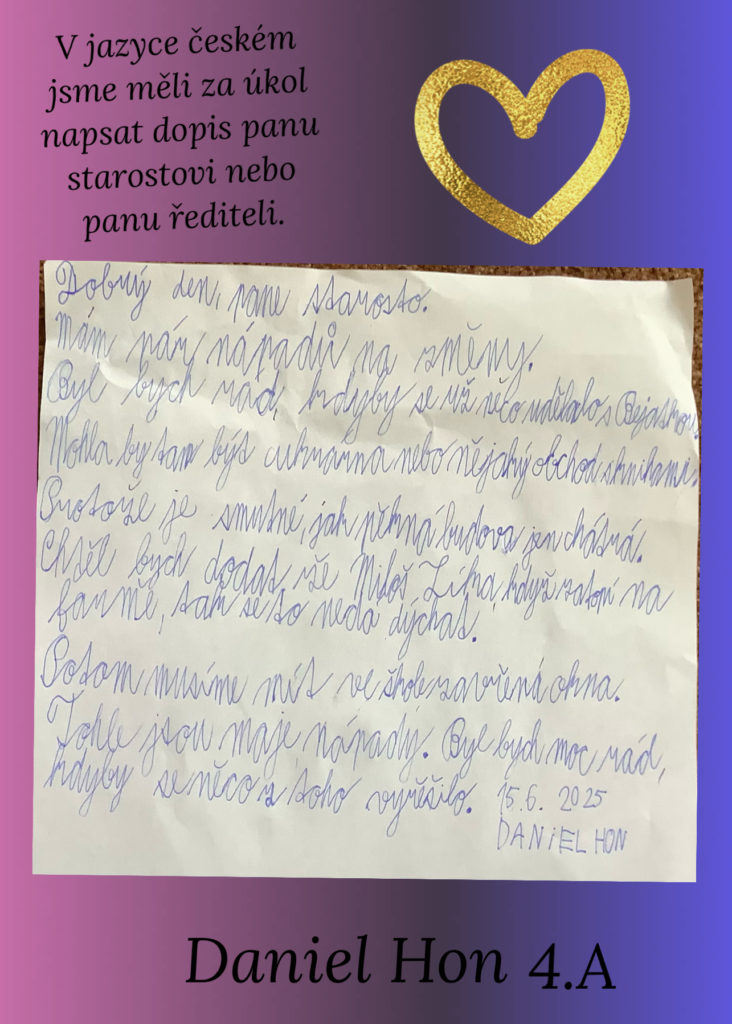 V jazyce českém
jsme měli za úkol
napsat dopis panu
starostovi nebo
panu řediteli.
Dobrý den, pane starosto.
Mám pár nápadů na změny.
Byl bych rád, kdyby se už něco udělalo s Bejaskou.
Mohla by tam být cukrárna nebo nějaký obchod s knihami.
Protože je smutné, jak pěkná budova jen chátrá.
Chtěl bych dodat, že Miloš Zíka, když zatopí na
farmě, tak se to nedá dýchat.
Potom musíme mít ve škole zavřená okna.
Tohle jsou moje nápady. Byl bych moc rád,
kdyby se něco z toho vyřešilo. 15.6. 2025
DANIEL HON
Daniel Hon 4.A